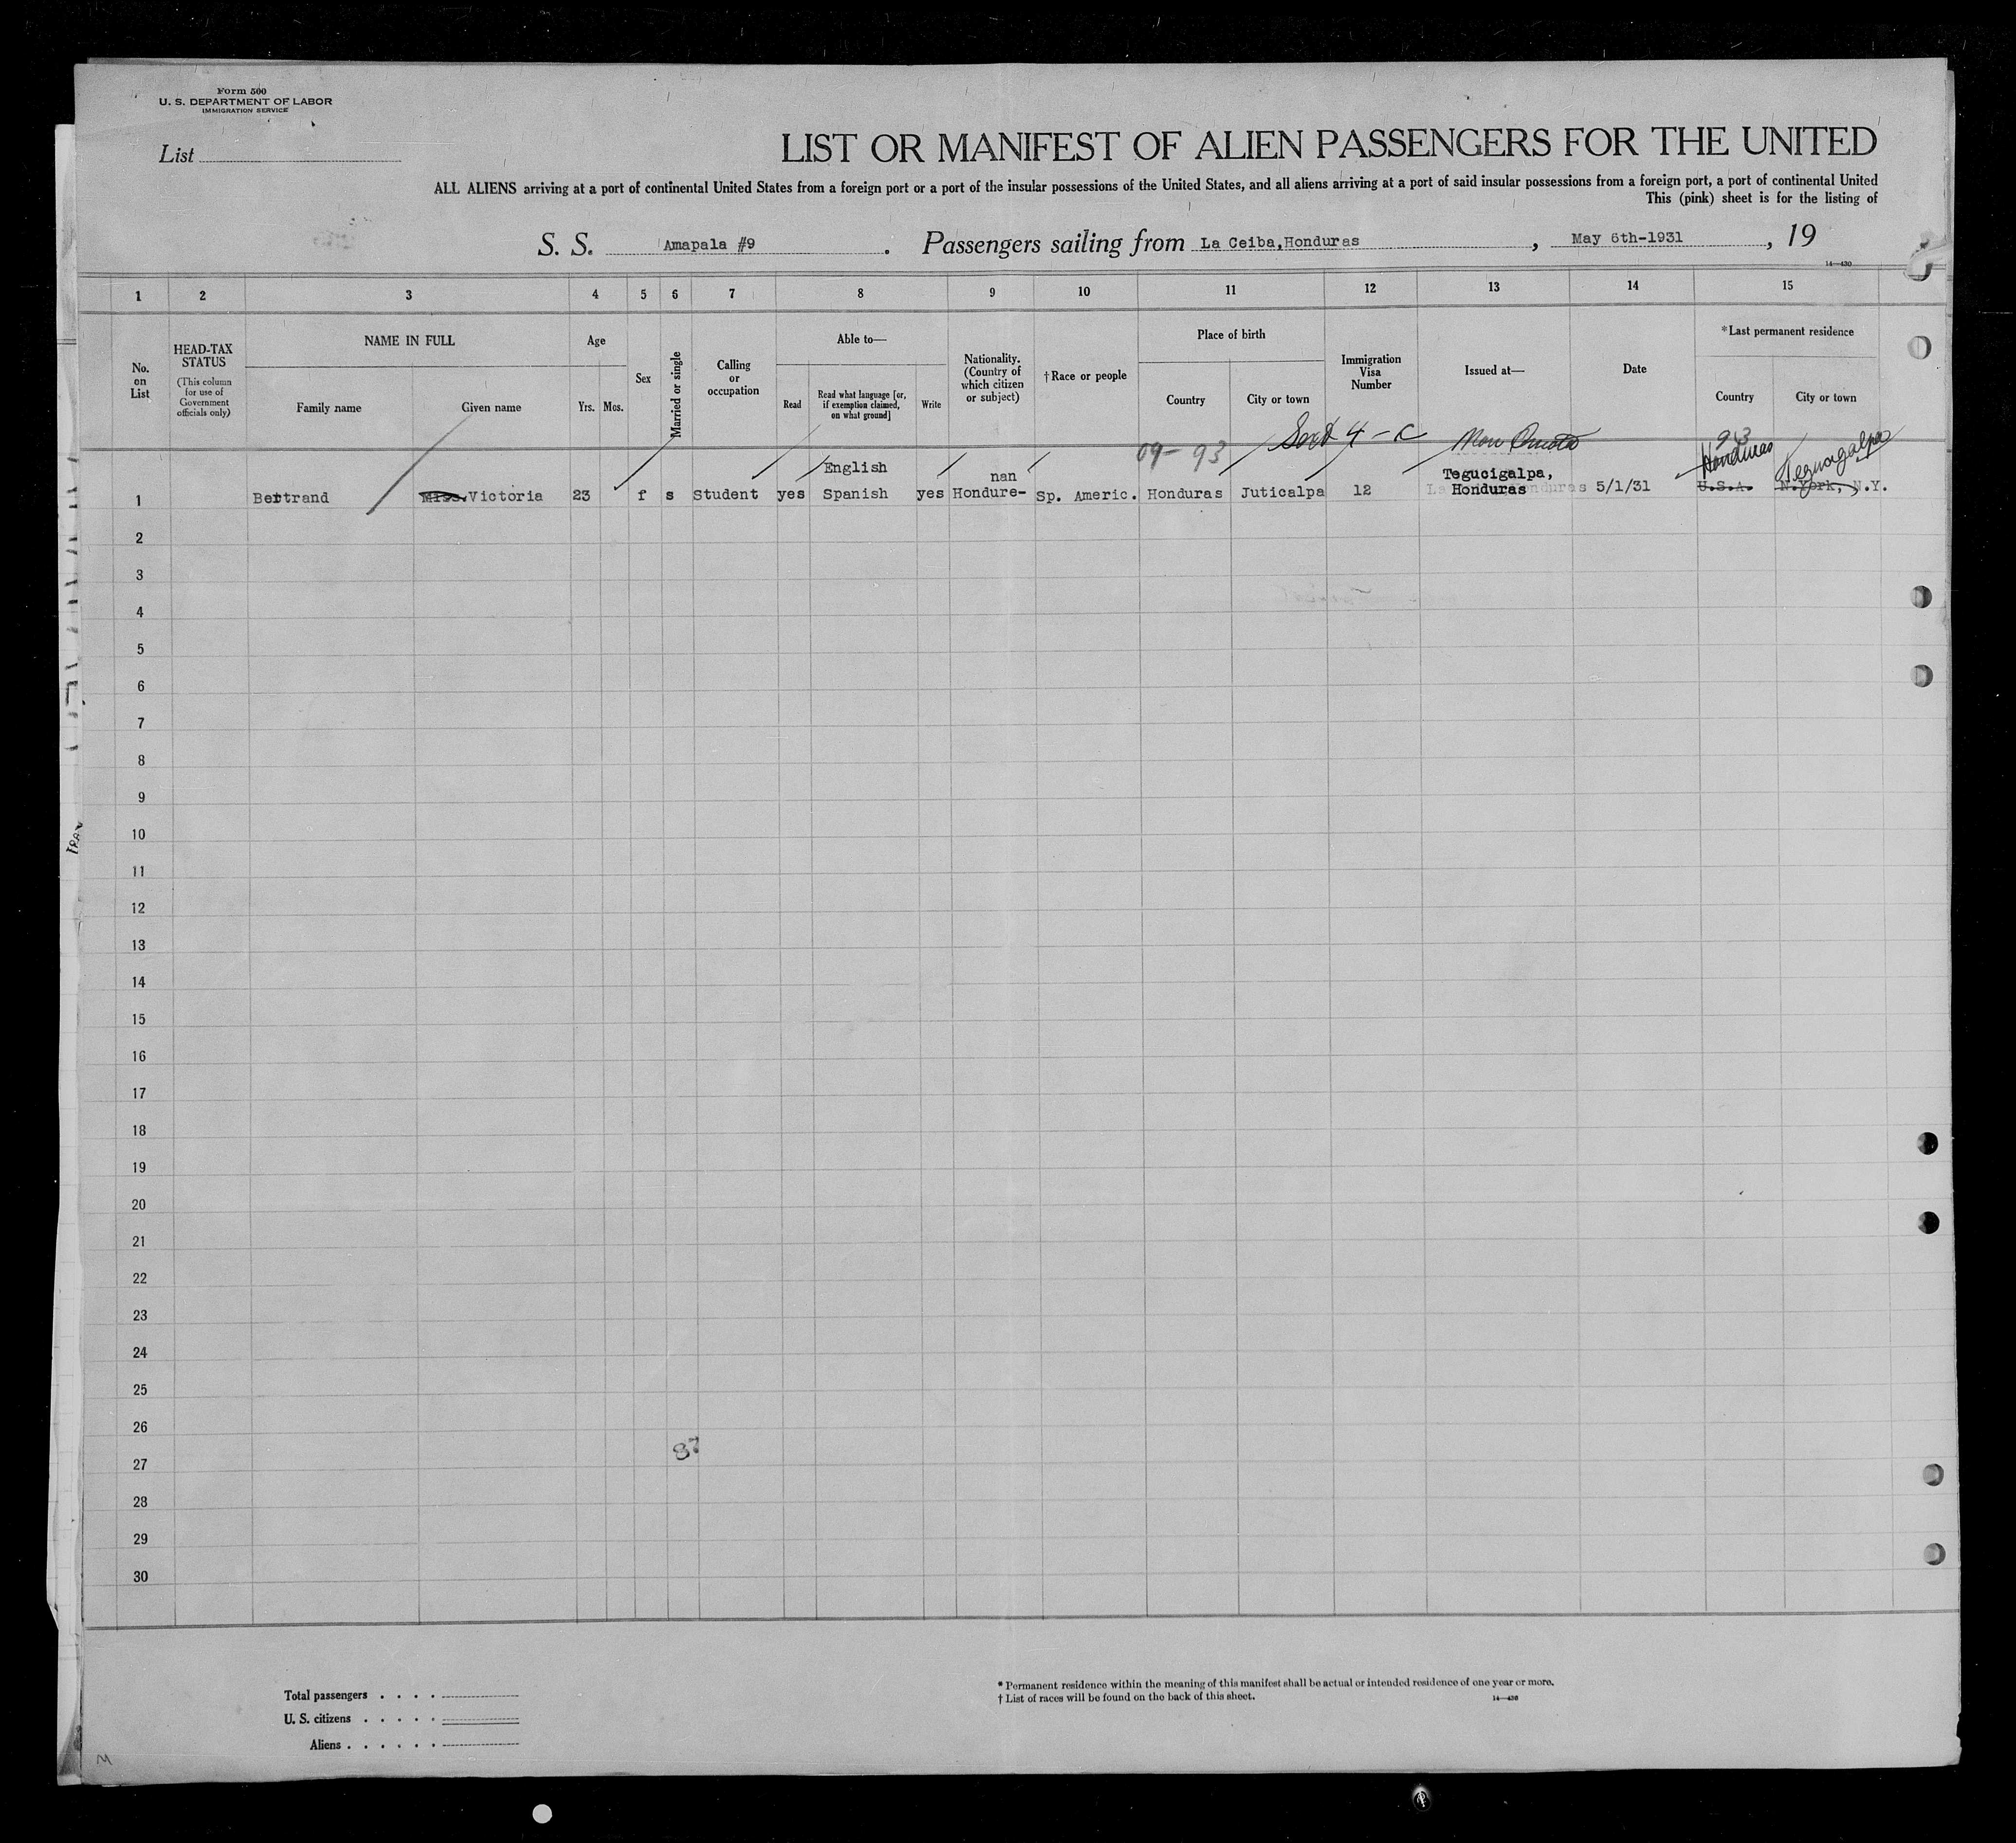 Form 500
U. S. DEPARTMENT OF LABOR
IMMIGRATION SERVICE
List
LIST OR MANIFEST OF ALIEN PASSENGERS FOR THE UNITED
ALL ALIENS arriving at a port of continental United States from a foreign port or a port of the insular possessions of the United States, and all aliens arriving at a port of said insular possessions from a foreign port, a port of continental United
This (pink) sheet is for the listing of
S. S. Amapala #9. Passengers sailing from La Ceiba,Honduras, May 6th-1931, 19
14—430
1 2 3 4 5 6 7 8 9 10 11 12 13 14 15
No. on List
HEAD-TAX STATUS
(This column for use of Government officials only)
NAME IN FULL
Family name
Given name
Age
Yrs. Mos.
Sex
Married or single
Calling or occupation
Able to—
Read
Read what language [or, if exemption claimed, on what ground]
Write
Nationality. (Country of which citizen or subject)
†Race or people
Place of birth
Country
City or town
Immigration Visa Number
Issued at—
Date
*Last permanent residence
Country
City or town
09-93 Sec 4-C Non Quota 93
Honduras Tegucigalpa
English nan Tegucigalpa,
1 Bertrand Miss. Victoria 23 f s Student yes Spanish yes Hondure- Sp. Americ. Honduras Juticalpa 12 Honduras 5/1/31 U.S.A. N.York, N.Y.
2
3
4
5
6
7
8
9
10
11
12
13
14
15
16
17
18
19
20
21
22
23
24
25
26
87
27
28
29
30
Total passengers . . . .
U. S. citizens . . . . .
Aliens . . . . . .
* Permanent residence within the meaning of this manifest shall be actual or intended residence of one year or more.
† List of races will be found on the back of this sheet.
14—430